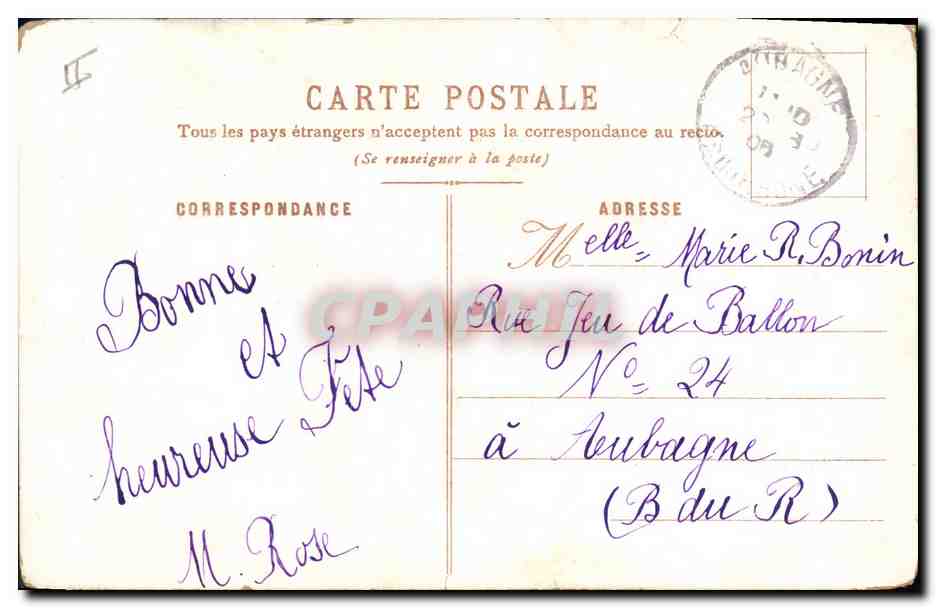 II
CARTE POSTALE
Tous les pays étrangers n'acceptent pas la correspondance au recto.
(Se renseigner à la poste)
CORRESPONDANCE
Bonne
et
heureuse Fête
M. Rose
ADRESSE
Melle Marie R. Bonin
Rue Jeu de Ballon
No 24
à Aubagne
(B du R)
AUBAGNE
CPAPHIL